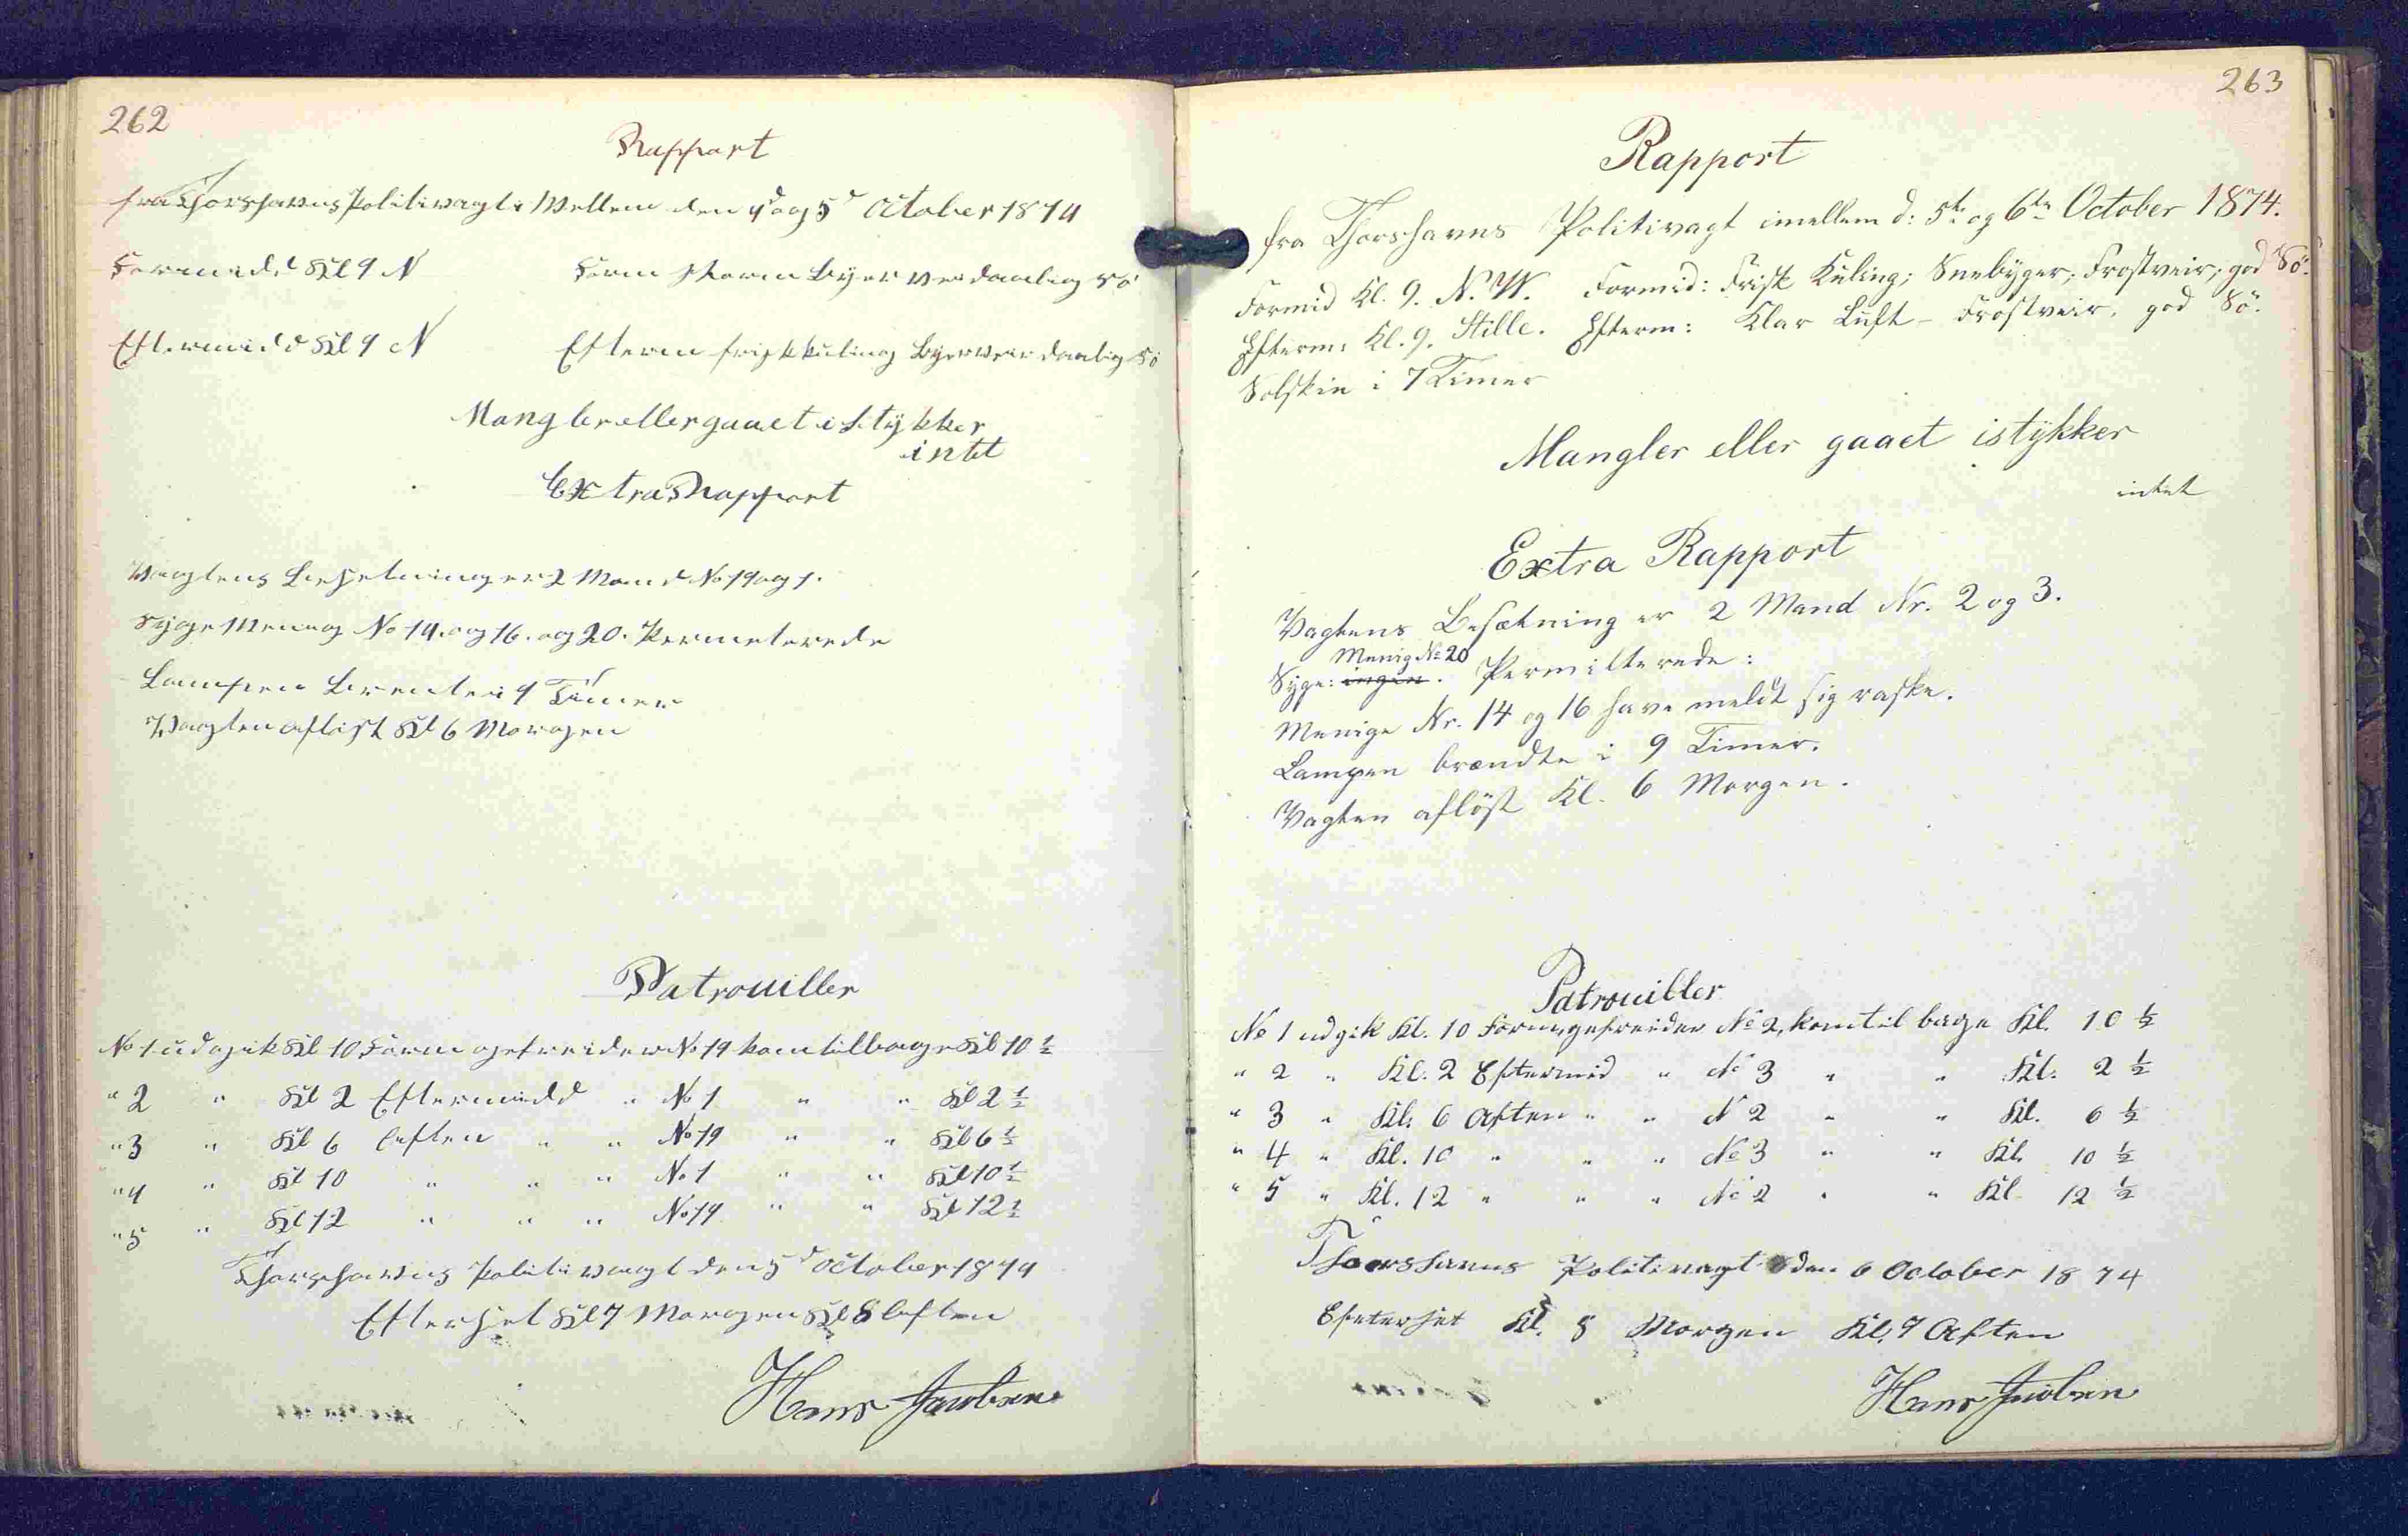 262
Rapport
fra Thorshavns Politivagt i Mellem den 4d og 5d October 1874
Formidd Kl 9 N Form Storm Byer veir daarlig Sö
Eftermidd Kl 9 N Efterm frisk kuling Byerveir daarlig Sö
Mangler eller gaaet i Stÿkker
intet
Extra Rapport
Vagtens Besetning er 2 Mand No 19 og 1.
Syge Menig No 14. og 16. og 20. Permeterede
Lampen Brente i 9 Timer
Vagten aflöst Kl 6 Morgen
Patrouiller
No 1 udgik Kl 10 Form gefreider No 19 kom tilbage Kl 10 ½
" 2 " Kl 2 Eftermidd " No 1 " " Kl 2 ½
" 3 " Kl 6 Aften " " No 19 " " Kl 6 ½
" 4 " Kl 10 " " " No 1 " " Kl 10 ½
" 5 " Kl 12 " " " No 19 " " Kl 12 ½
Thorshavns Politivagt den 5d October 1874
Efterset Kl 7 Morgen Kl 8 Aften
Hans Jacobsen
263
Rapport
fra Thorshavns Politivagt imellem d: 5te og 6te October 1874.
Formid Kl. 9. N. W. Formid: Frisk Kuling; Snebÿger, Frostveir, god Sö.
Efterm: Kl. 9. Stille. Efterm: Klar Luft - Frostveir, god Sö.
Solskin i 7 Timer
Mangler eller gaaet istÿkker
intet
Extra Rapport
Vagtens Besætning er 2 Mand Nr. 2 og 3.
Menig No 20
Syge: ingen. Permitterede:
Menige Nr. 14 og 16 have meldt sig raske.
Lampen brændte i 9 Timer.
Vagten aflöst Kl. 6 Morgen.
Patrouiller
No 1 udgik Kl. 10 Form, gefreider No 2, kom til bage Kl. 10 ½
" 2 " Kl. 2 Eftermid " No 3 " " Kl. 2 ½
" 3 " Kl. 6 Aften " " N 2 " " Kl. 6 ½
" 4 " Kl. 10 " " " No 3 " " Kl. 10 ½
" 5 " Kl. 12 " " " No 2 " " Kl 12 ½
Thorshavns Politivagt den 6 October 1874
Efeterset Kl. 8 Morgen Kl. 9 Aften
Hans Jacobsen